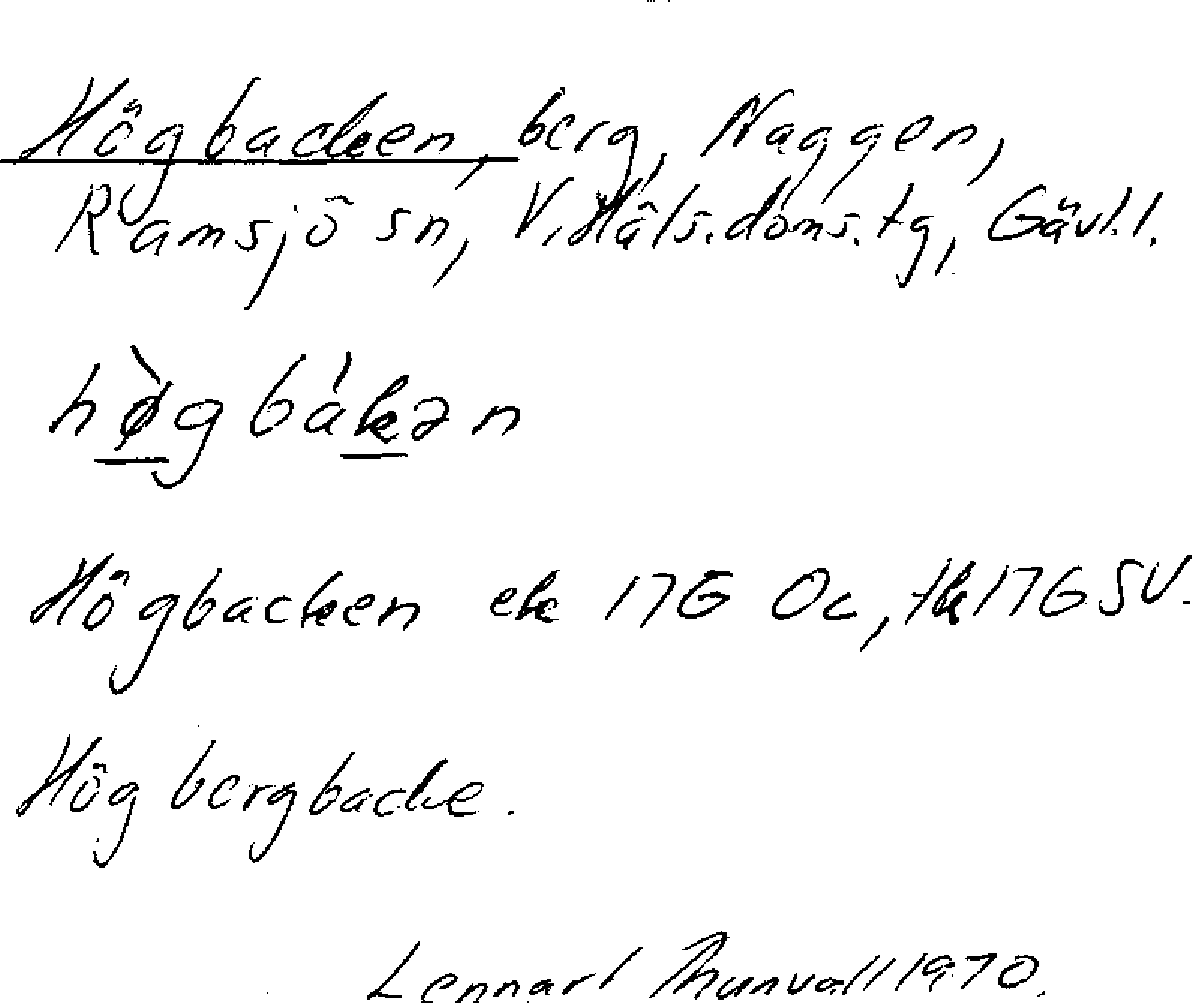 Högbacken, berg, Naggen,
Ramsjö sn, V. Häls. doms. tg, Gävl. l.
hø̀gbákən
Högbacken ek 17G Oc, tk 17G SV.
Hög bergbacke.
Lennart Thunvall 1970.